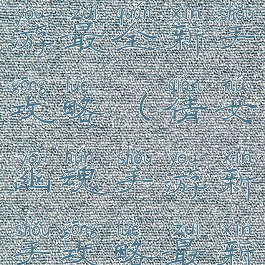 yóu zuì quán xīn shǒu
游最全新手
gōng lüè qiàn nǚ
攻略（倩女
yōu hún shǒu yóu xīn
幽魂手游新
shǒu gōng lüè zuì xīn
手攻略最新